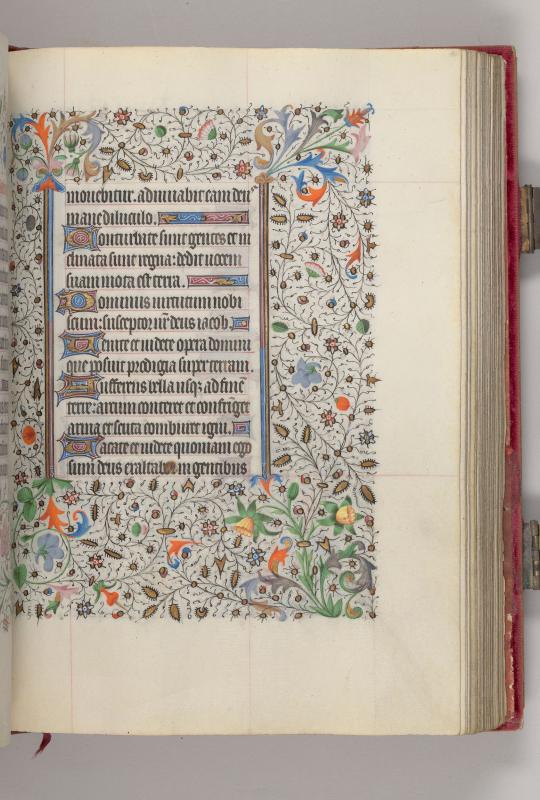 movebitur. adiuvabit eam deus
mane diluculo.
Conturbate sunt gentes et in
clinata sunt regna: dedit vocem
suam mota est terra.
Dominus virtutum nobi
scum: susceptor nr̄ deus iacob.
Venite et videte opera domini
que posuit prodigia super terram.
Aufferens bella usqꝫ ad finē
terre: arcum conteret et confringet
arma et scuta comburet igni.
Vacate et videte quoniam ego
sum deus exaltabor in gentibus